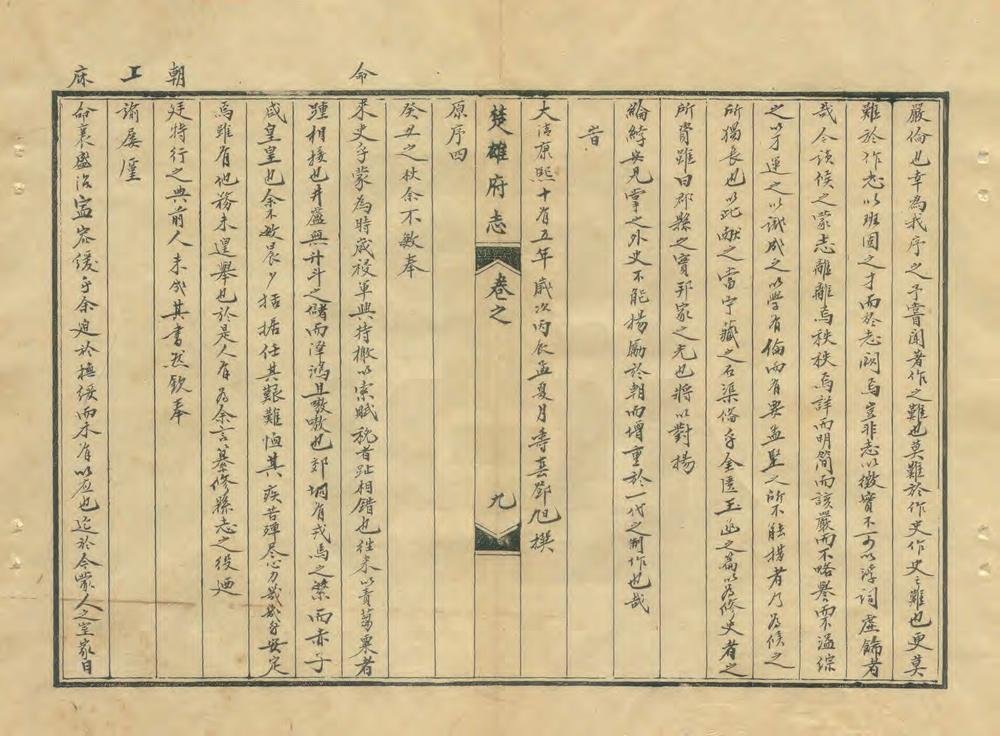 嚴倫也幸為我序之予嘗聞著作之難也莫難於作史作史之難也更莫
難於作志以班固之才而於志闕焉豈非志以徵實不可以浮詞虛飾者
哉今該侯之蒙志離離焉秩秩焉詳而明簡而該嚴而不略譽而不溢綜
之以才運之以識成之以學有倫而有要孟堅之所不能揩者乃為侯之
所獨長也以此獻之當宁藏之石渠俻乎金匱玉函之篇以為修史者之
所資雖曰郡縣之實邦家之光也將以對揚
綸綍安見掌之外史不能揚勵於朝而增重於一代之制作也哉
旹
大清康熙十有五年歲次丙辰孟夏月壽春鄧旭撰
楚雄府志 卷之 九
原序四
癸丑之秋余不敏奉
命来吏乎蒙為時歲祲軍興持檄以索賦税者趾相錯也徃来以責蒭粟者
踵相接也井廬無升斗之儲而澤鴻且嗷嗷也郊坰有戎馬之縶而赤子
咸皇皇也余不敏晨夕拮据任其艱難恤其疾苦殫盡心力幾幾乎安定
焉雖有他務未遑舉也於是人有為余言纂修縣志之役廼
朝廷特行之典前人未成其書然欽奉
上諭屡㕓
庥命襄盛治寔容缓乎余迫於撫绥而未有以应也迄於今蒙人之室家日